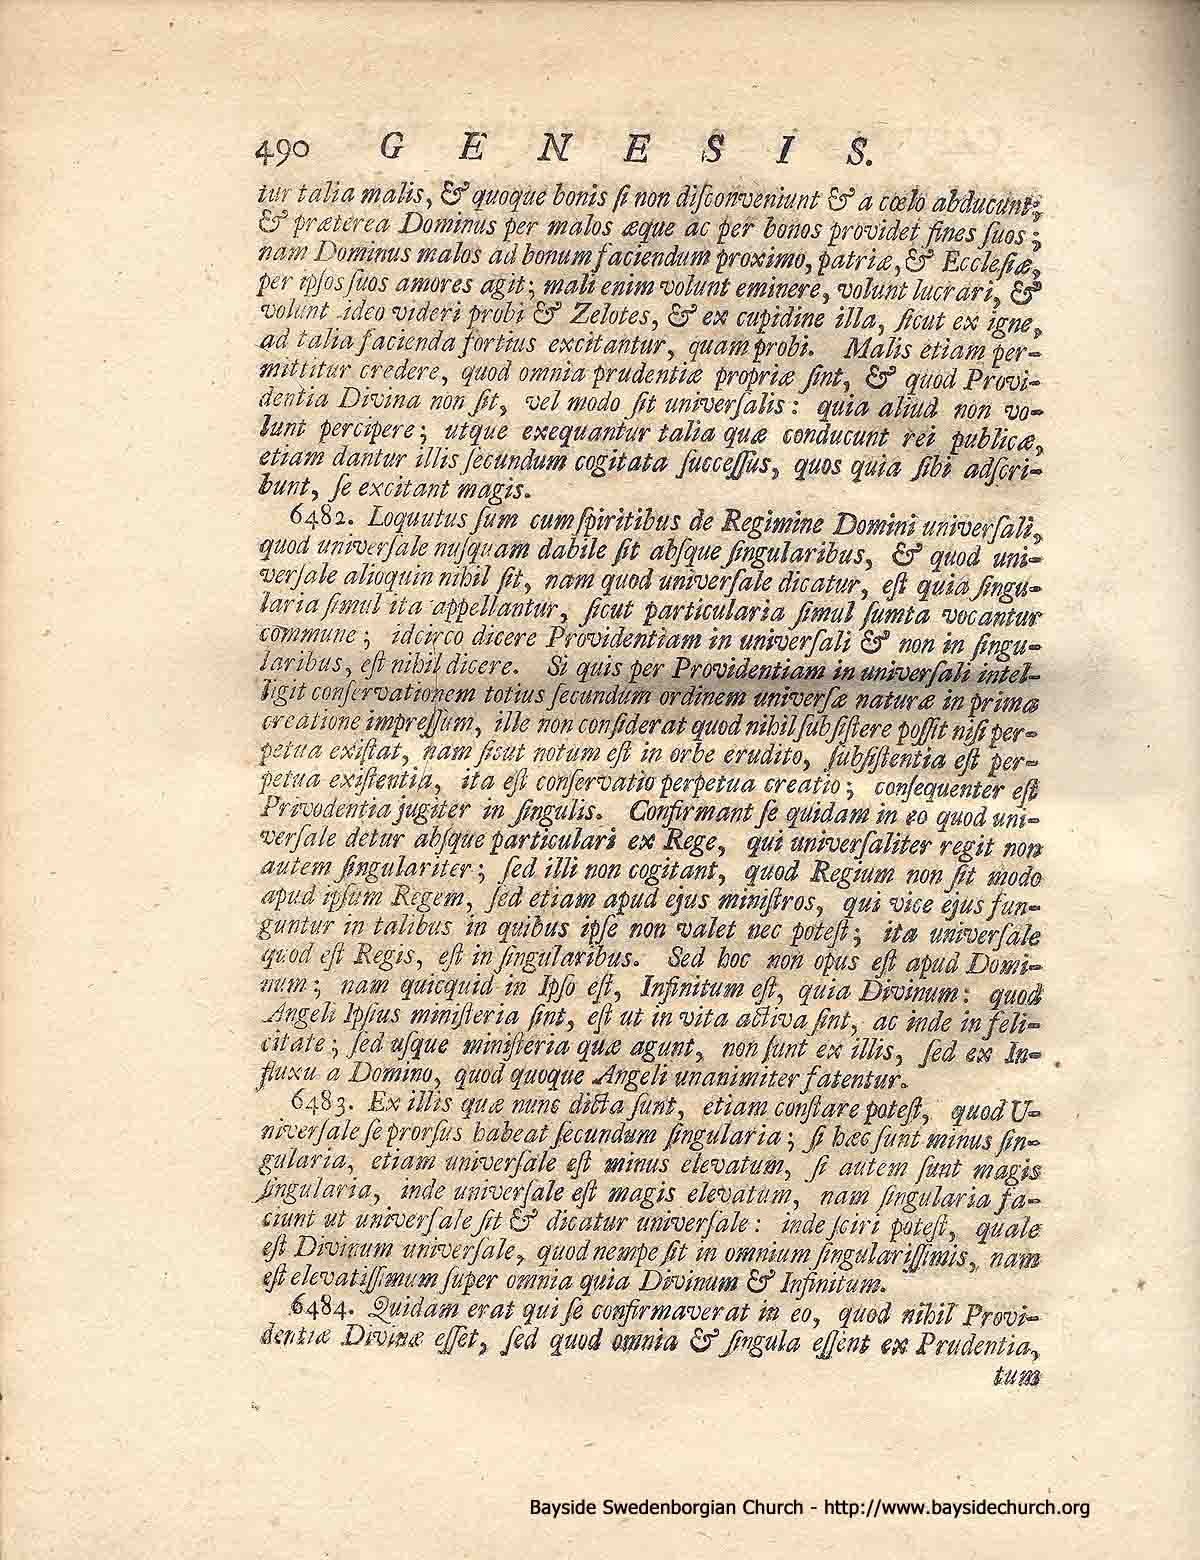 490 G E N E S I S.
tur talia malis, & quoque bonis ſi non diſconveniunt & a cœlo abducunt;
& præterea Dominus per malos æque ac per bonos providet fines ſuos;
nam Dominus malos ad bonum faciendum proximo, patriæ, & Eccleſiæ,
per ipſos ſuos amores agit; mali enim volunt eminere, volunt lucrari, &
volunt ideo videri probi & Zelotes, & ex cupidine illa, ſicut ex igne,
ad talia facienda fortius excitantur, quam probi. Malis etiam per-
mittitur credere, quod omnia prudentiæ propriæ ſint, & quod Provi-
dentia Divina non ſit, vel modo ſit univerſalis: quia aliud non vo-
lunt percipere; utque exequantur talia quæ conducunt rei publicæ,
etiam dantur illis ſecundum cogitata ſucceſſus, quos quia ſibi adſcri-
bunt, ſe excitant magis.
6482. Loquutus ſum cum ſpiritibus de Regimine Domini univerſali,
quod univerſale nuſquam dabile ſit abſque ſingularibus, & quod uni-
verſale alioquin nihil ſit, nam quod univerſale dicatur, eſt quia ſingu-
laria ſimul ita appellantur, ſicut particularia ſimul ſumta vocantur
commune; idcirco dicere Providentiam in univerſali & non in ſingu-
laribus, eſt nihil dicere. Si quis per Providentiam in univerſali intel-
ligit conſervationem totius ſecundum ordinem univerſæ naturæ in prima
creatione impreſſum, ille non conſiderat quod nihil ſubſiſtere poſſit niſi per-
petua exiſtat, nam ſisut notum eſt in orbe erudito, ſubſiſtentia eſt per-
petua exiſtentia, ita eſt conſervatio perpetua creatio; conſequenter eſt
Privodentia jugiter in ſingulis. Confirmant ſe quidam in eo quod uni-
verſale detur abſque particulari ex Rege, qui univerſaliter regit non
autem ſingulariter; ſed illi non cogitant, quod Regium non ſit modo
apud ipſum Regem, ſed etiam apud ejus miniſtros, qui vice ejus fun-
guntur in talibus in quibus ipſe non valet nec poteſt; ita univerſale
quod eſt Regis, eſt in ſingularibus. Sed hoc non opus eſt apud Domi-
num; nam quicquid in Ipſo eſt, Infinitum eſt, quia Divinum: quod
Angeli Ipſius miniſteria ſint, eſt ut in vita activa ſint, ac inde in feli-
citate; ſed uſque miniſteria quæ agunt, non ſunt ex illis, ſed ex In-
fluxu a Domino, quod quoque Angeli unanimiter fatentur.
6483. Ex illis quæ nunc dicta ſunt, etiam conſtare poteſt, quod U-
niverſale ſe prorſus habeat ſecundum ſingularia; ſi hæc ſunt minus ſin-
gularia, etiam univerſale eſt minus elevatum, ſi autem ſunt magis
ſingularia, inde univerſale eſt magis elevatum, nam ſingularia fa-
ciunt ut univerſale ſit & dicatur univerſale: inde ſciri poteſt, quale
eſt Divinum univerſale, quod nempe ſit in omnium ſingulariſſimis, nam
eſt elevatiſſimum ſuper omnia quia Divinum & Infinitum.
6484. Quidam erat qui ſe confirmaverat in eo, quod nihil Provi-
dentiæ Divinæ eſſet, ſed quod omnia & ſingula eſſent ex Prudentia,
tum
Bayside Swedenborgian Church - http://www.baysidechurch.org